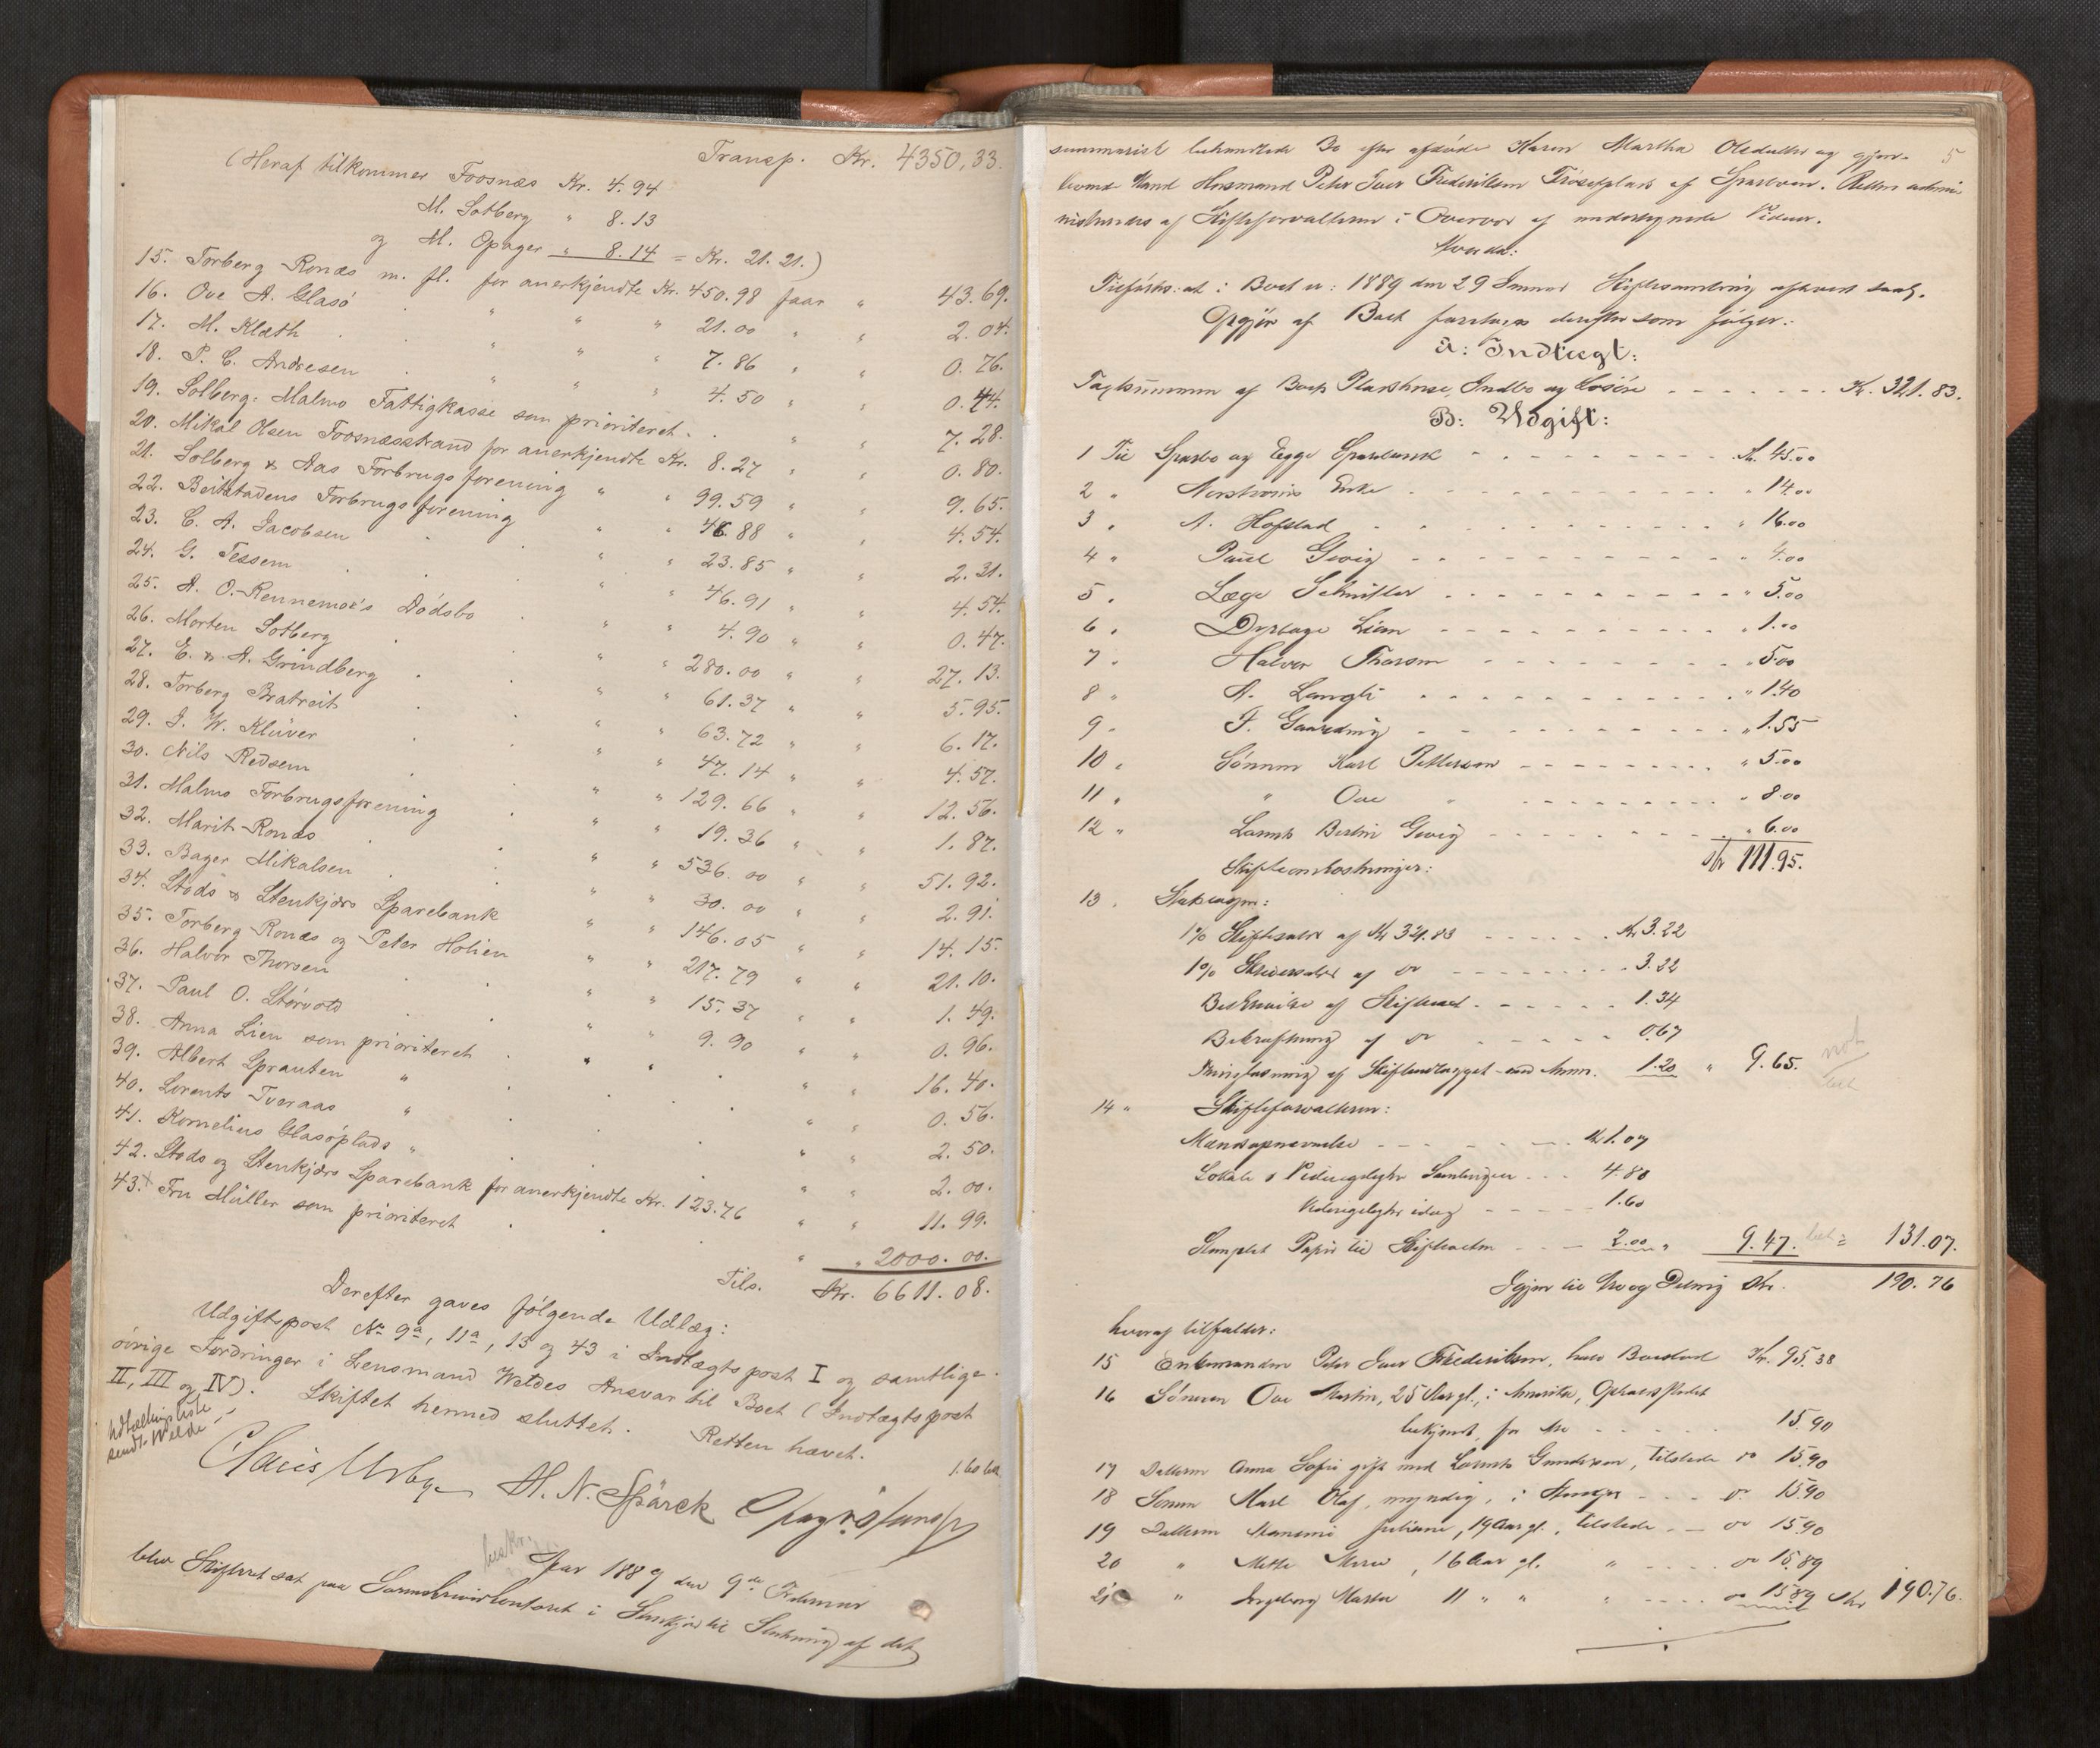 Transp. Kr. 4350,33.
(Heraf tilkommer Foosnæs Kr. 4.94
M. Sotberg " 8.13
og M. Opager " 8.14 = Kr. 21.21.)
15. Torberg Ronæs m. fl. for anerkjendte Kr. 450.98 faar " 43.69.
16. Ove A. Glasø " " " 21.00 " " 2.04.
17. M. Klæth " " " 7.86 " " 0.76.
18. P. C. Andresen " " " 4.50 " " 0.44.
19. Solberg: Malmo Fattigkasse som prioriteret " " 7.28.
20. Mikal Olsen Foosnæsstrand for anerkjendte Kr. 8.27 " " 0.80.
21. Solberg & Aas Forbrugsforening " " 99.59 " " 9.65.
22. Beitstadens Forbrugsforening " " 46.88 " " 4.54.
23. C. A. Jacobsen " " 23.85 " " 2.31.
24. G. Tessem " " 46.91 " " 4.54.
25. A. O. Rennemoe's Dødsbo " " 4.90 " " 0.47.
26. Morten Sotberg " " 280.00 " " 27.13.
27. E. & A. Grindberg " " 61.37 " " 5.95.
28. Torberg Bratreit " " 63.72 " " 6.17.
29. J. W. Klüver " " 47.14 " " 4.57.
30. Nils Rødsem " " 129.66 " " 12.56.
31. Malmo Forbrugsforening " " 19.36 " " 1.87.
32. Marit Ronæs " " 536.00 " " 51.92.
33. Bager Mikalsen " " 30.00 " " 2.91.
34. Stods & Stenkjærs Sparebank " " 146.05 " " 14.15.
35. Torberg Ronæs og Peter Holien " " 217.79 " " 21.10.
36. Halvor Thorsen " " 15.37 " " 1.49.
37. Paul O. Størvold " " 9.90 " " 0.96.
38. Anna Lien som prioriteret " " 16.40.
39. Albert Sprauten " " " 0.56.
40. Lorents Tveraas " " " 2.50.
41. Kornelius Glasøplads " " " 2.00.
42. Stods og Stenkjærs Sparebank for anerkjendte Kr. 123.76 " " 11.99.
43. Fru Müller som prioriteret " " 2000.00.
Tils. Kr. 6611.08.
Derefter gaves følgende Udlæg:
Udgiftspost No 9a, 11a, 15 og 43 i Indtægtspost I og samtlige
øvrige Fordringer i Lensmand Weldes Ansvar til Boet (Indtægtspost
II, III og IV). Skiftet hermed sluttet. Retten hævet.
Udtællingsliste
sendt Welde
1.60
Claus Urbye H. N. Spärck
Aar 1889 den 9de Februar
blev Skifteret sat paa Sorenskriverkontoret i Stenkjær til Slutning af det
5
summarisk behandlede Bo efter afdøde Karen Martha Olsdatter og gjen-
levende Mand Husmand Peter Iver Frederiksen Fossetplads af Sparbuen. Retten admini-
streredes af Skifteforvalteren i Overvær af undertegnede Vidner.
Hvorda:
Tilførtes: at i Boet er 1889 den 29 Januar Skiftesamling afholdt saal.
Opgjør af Boet foretages derefter som følger:
A: Indtægt:
Taxtsummen af Boets Plasthuse, Indbo og Løsøre - - - Kr. 321.83.
B: Udgift:
1 Til Sparbo og Egge Sparebank - - - Kr. 45.00
2 " Enke - - - " 14.00
3 " A. Hofstad - - - " 16.00
4 " Paul Gievig - - - " 4.00
5 " Læge Schnitler - - - " 5.00
6 " Dyrlæge Lien - - - " 1.00
7 " Halvor Thorsen - - - " 5.00
8 " A. Langli - - - " 1.40
9 " - - - " 1.55
10 " Sønnen Karl Pettersen - - - " 5.00
11 " " Ove " - - - " 8.00
12 " Lornts Gievig - - - " 6.00
Kr 111.95.
Skifteomkostninger:
13 " Statskassen:
1% Skifteafgift af Kr 321.83 - - - Kr 3.22
1% Skriversalær af do - - - 3.22
Beskrivelse af Skifteret - - - 1.34
Bekræftning af do - - - 0.67
af Skifteudlægget med Anm. 1.20 " 9.65.
14 " Skifteforvalteren:
Mændsopnævnelse - - - Kr 1.07
Lokale & Vidnegodtgj. Samlingen - - - 4.80
Vidnegodtgj. idag - - - 1.60
Stemplet Papir til Skifteakten - - - 2.00 " 9.47. 131.07.
Igjen til Arv og Deling Kr. 190.76
hvoraf tilfalder:
15 Enkemanden Peter Iver Frederiksen, halv Boeslod Kr. 95.38
16 Sønnen Ove Martin, 25 Aar gl., i Amerika, Opholdsstedet
bekjendt, for Arv - - - 15.90
17 Datteren Anna Sofie gift med Lornts Gundersen, tilstede do 15.90
18 Sønnen Karl Olaf, myndig, i - - - do 15.90
19 Datteren Juliane, 19 Aar gl., tilstede - - do 15.90
20 " Mette Marie, 16 Aar gl. " - - - do 15.89
21 " Ingeborg Martha 11 " " " - - - do 15.89 Kr 190.76.